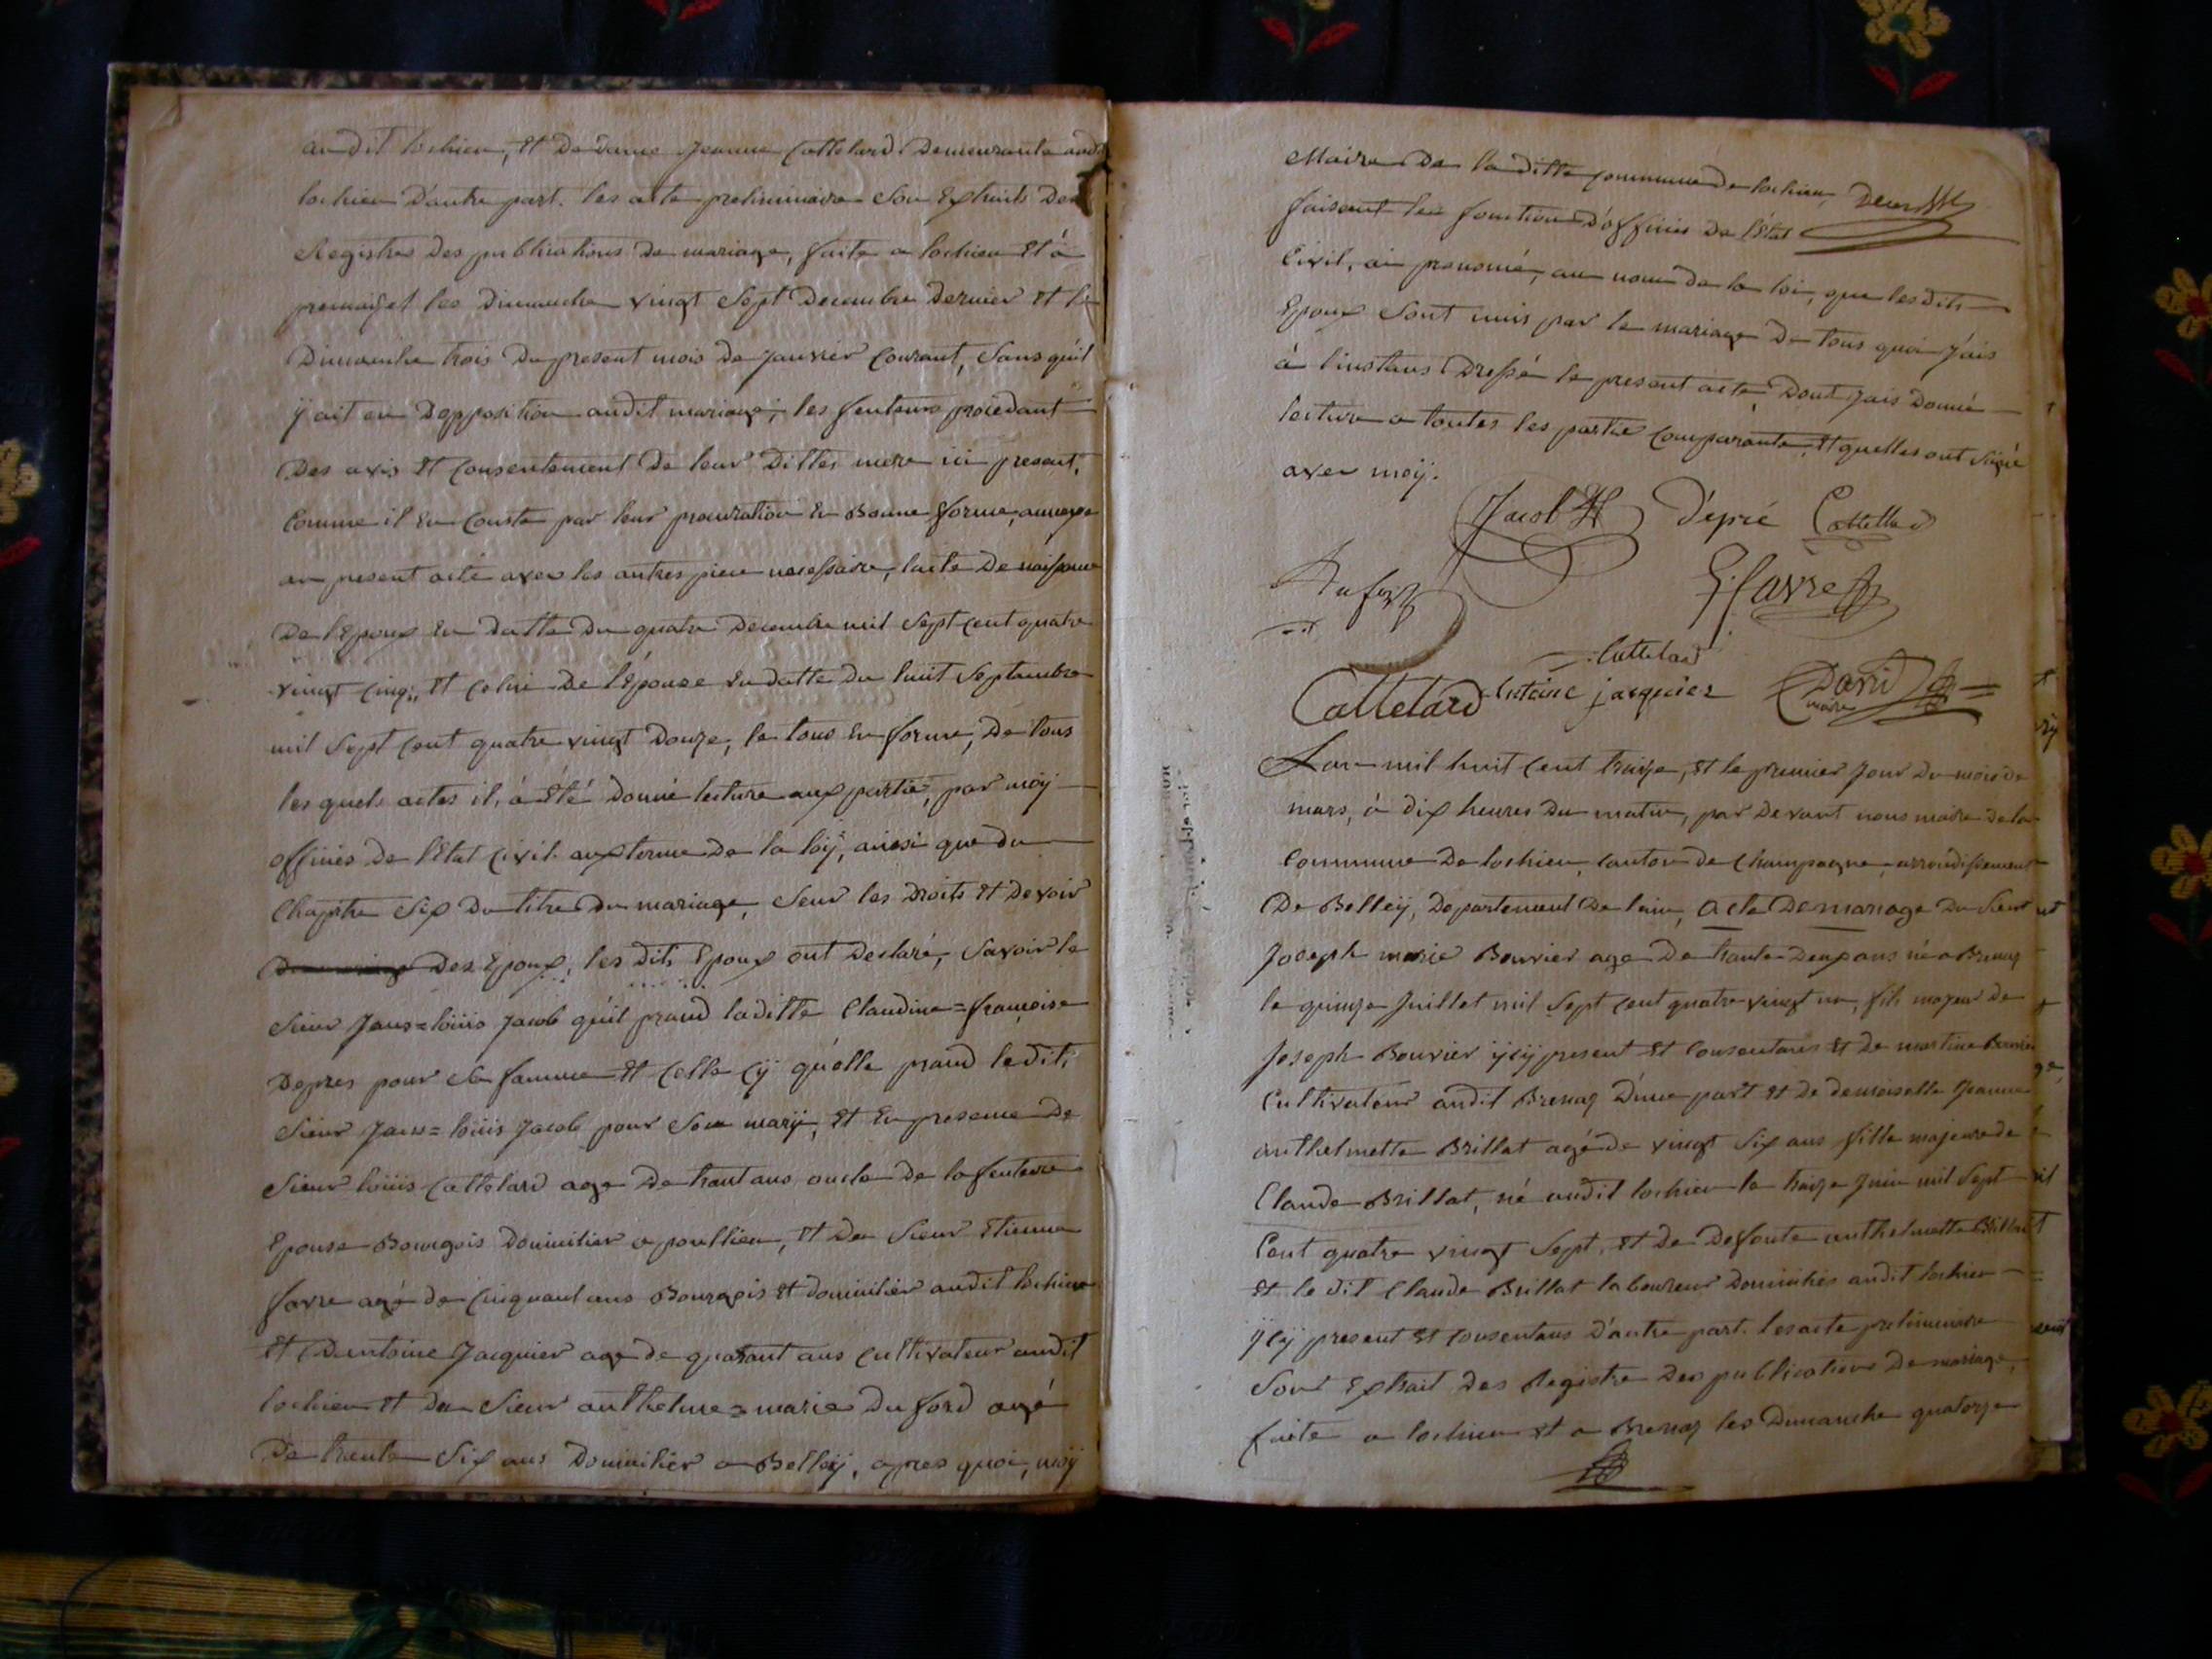 au dit lochieu, et de dame Jeanne Cattelard demeurante aud
lochieu d'autre part. les acte preliminaire son Extraits des
Registres des publications de mariage, faite a lochieu et à
les dimanche vingt Sept decembre dernier et le
Dimanche trois du present mois de Janvier Courant, Sans quil
y ait eu dopposition audit mariage; les futeurs procedant
des avis et Consentement de leur dittes mere ici present,
Comme il en Conste par leur procuration en Bonne forme, annexe
au present acte avec les autres piece necessaire, lacte de naissance
de l'Epoux en datte du quatre decembre mil Sept Cent quatre
vingt Cinq, et Celui de l'Epouse en datte du huit Septembre
mil Sept Cent quatre vingt douze, le tous en forme, de tous
les quels actes il, à été donné lecture aux partie, par moÿ
officies de l'Etat Civil aux terme de la loÿ, ainsi que du
Chapitre Six du titre du mariage, Seur les droits et devoir
des Epoux, les dits Epoux ont declaré, Savoir le
Sieur Jans=loüis Jacob qúil prand laditte Claudine=françoise
Depres pour Sa famme et Celle Cÿ qúelle prand ledit,
Sieur Jans=loüis Jacob pour Son marÿ, et En presence de
Sieur loüis Cattelard age de trant ans oncle de la futeure
Epouse Bourgois domicilier a poullieu, et de Sieur Etienne
favre agé de Cinquant ans Bourgois et domicilier audit lochieu
et dantoine Jacquier age de quarant ans Cultivateur audit
lochieu et de Sieur anthelme=marie du ford agé
de trente Six ans domicilier a Belleÿ, apres quoi, moÿ
Maire de la ditte Commune de lochieu
faisant les fonction d'officies de l'Etat
Civil, ai prononcé, au nom de la loi, que les dits
Epoux Sont unis par le mariage de tous quoi J'ais
à linstans dressé le present acte dont Jais donné
lecture a toutes les partie Comparante, et quelles ont Signé
avec moÿ.
Jacob d'epré Cattellard
Dufort E. favre
Cattelard
Cattelard antoine jacquier David
maire
Lan mil huit Cent treize, et le premier Jour du mois de
mars, à dix heures du matin, par devant nous maire de la
Commune de lochieu, Canton de Champagne, arrondissement
De Belleÿ, departement de lain, acte de mariage du Sieur
Joseph marie Bouvier age de trante deux ans né a Brenaz
le quinze Juillet mil Sept Cent quatre vingt un, fils majeur de
Joseph Bouvier ÿcÿ present et Consentans et de martine Bouvier
Cultivateur audit Brenaz d'une part et de demoiselle Jeanne
anthelmette Brillat agé de vingt Six ans fille majeure de
Claude Brillat, né audit lochieu le treize Juin mil Sept
Cent quatre vingt Sept, et de defonte anthelmette Brillat
et le dit Claude Brillat laboureur domicilies audit lochieu
ÿcÿ present et Consentans d'autre part. les acte preliminaire
Sont Extrait des Registre des publication de mariage,
faite a lochieu et a Brenaz les Dimanche quatorze